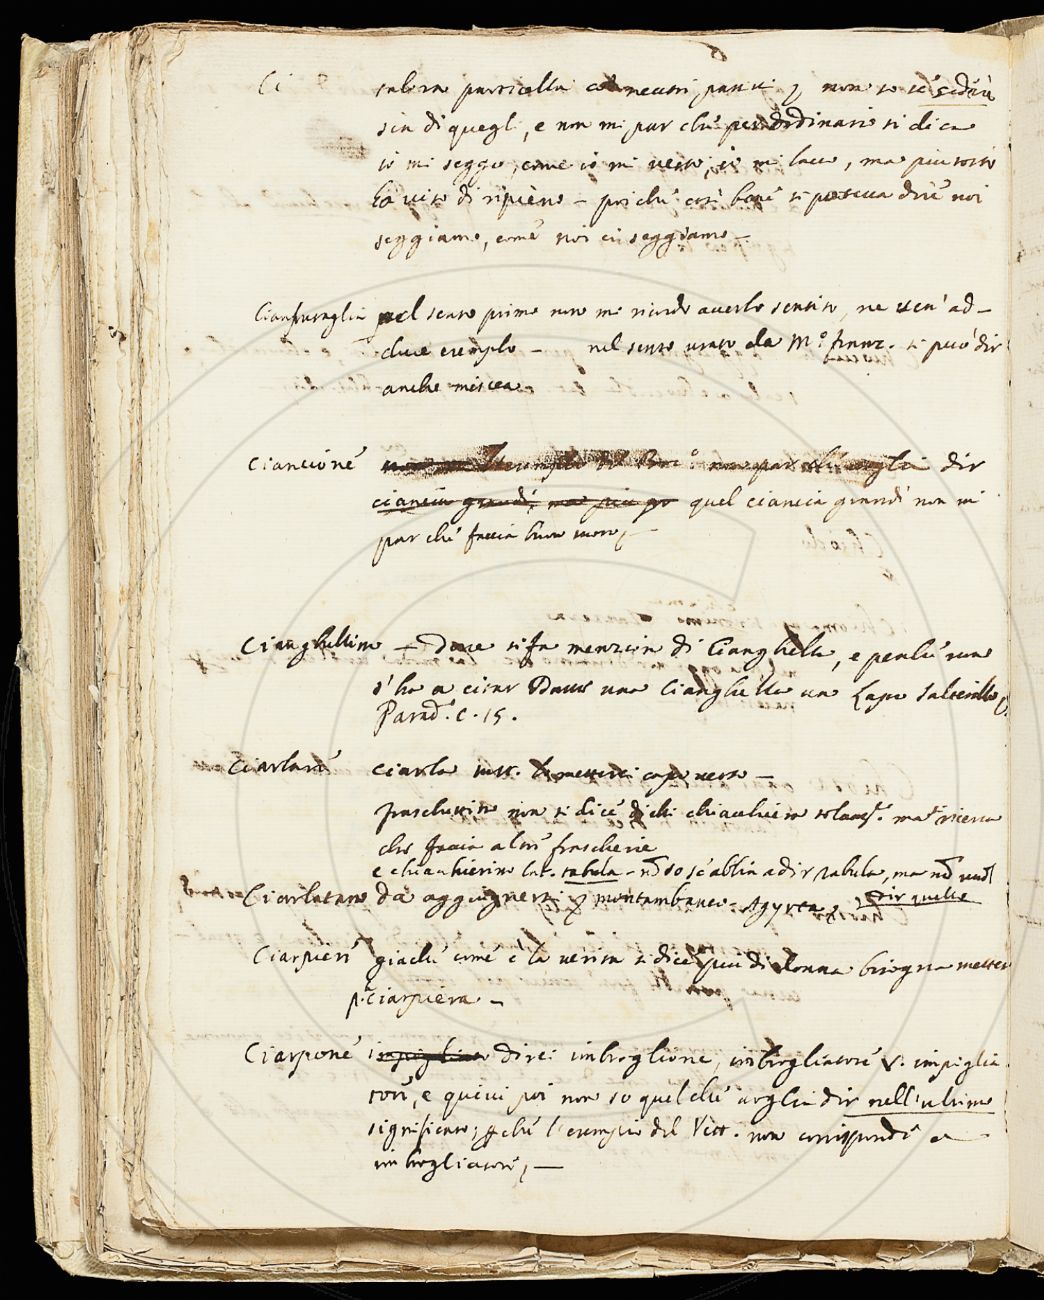 Ci talora particella con neutri passivi, non so se sedere
sia di quegli, e non mi par che per ordinario si dica
io mi seggo, come io mi vesto, io mi lavo, ma più tosto
è di ripieno — poiche così bene si poteva dire noi
seggiamo, come noi ci seggiamo —
Cianfrusaglia nel senso primo non mi ricordo averlo sentito, ne ven' ad-
duce esemplo — nel senso usato da M.º franz. si può dir
anche miscea
Ciancione non par che voglia dir
ciancia grandi, ma più quel ciancia grandi non mi
par che faccia buon suono, —
Cianghellino — Dove si fa menzion di Cianghella, e perche non
s'ha a citar Dante una Cianghella un Lapo Salterello,
Parad. C. 15.
Ciarlare ciarla sust. da mettersi capo verso —
fraschettino non si dice di chi chiacchiera ma
che faccia altre frascherie
e chiacchierino lat. rabula — nō so s'abbia a dir rabula, ma nō vuol
dir quello
Ciarlatano da aggiugnersi montambanco — Agyrta,
Ciarpieri giache come è la verità si dice più di donna bisogna metter
ciarpiera —
Ciarpone direi imbroglione, imbrogliatore V. impiglia
tore, e quivi poi non so quel che voglia dir nell'ultimo
significato, pche l'esempio del Vett. non corrisponde a
imbrogliatore, —